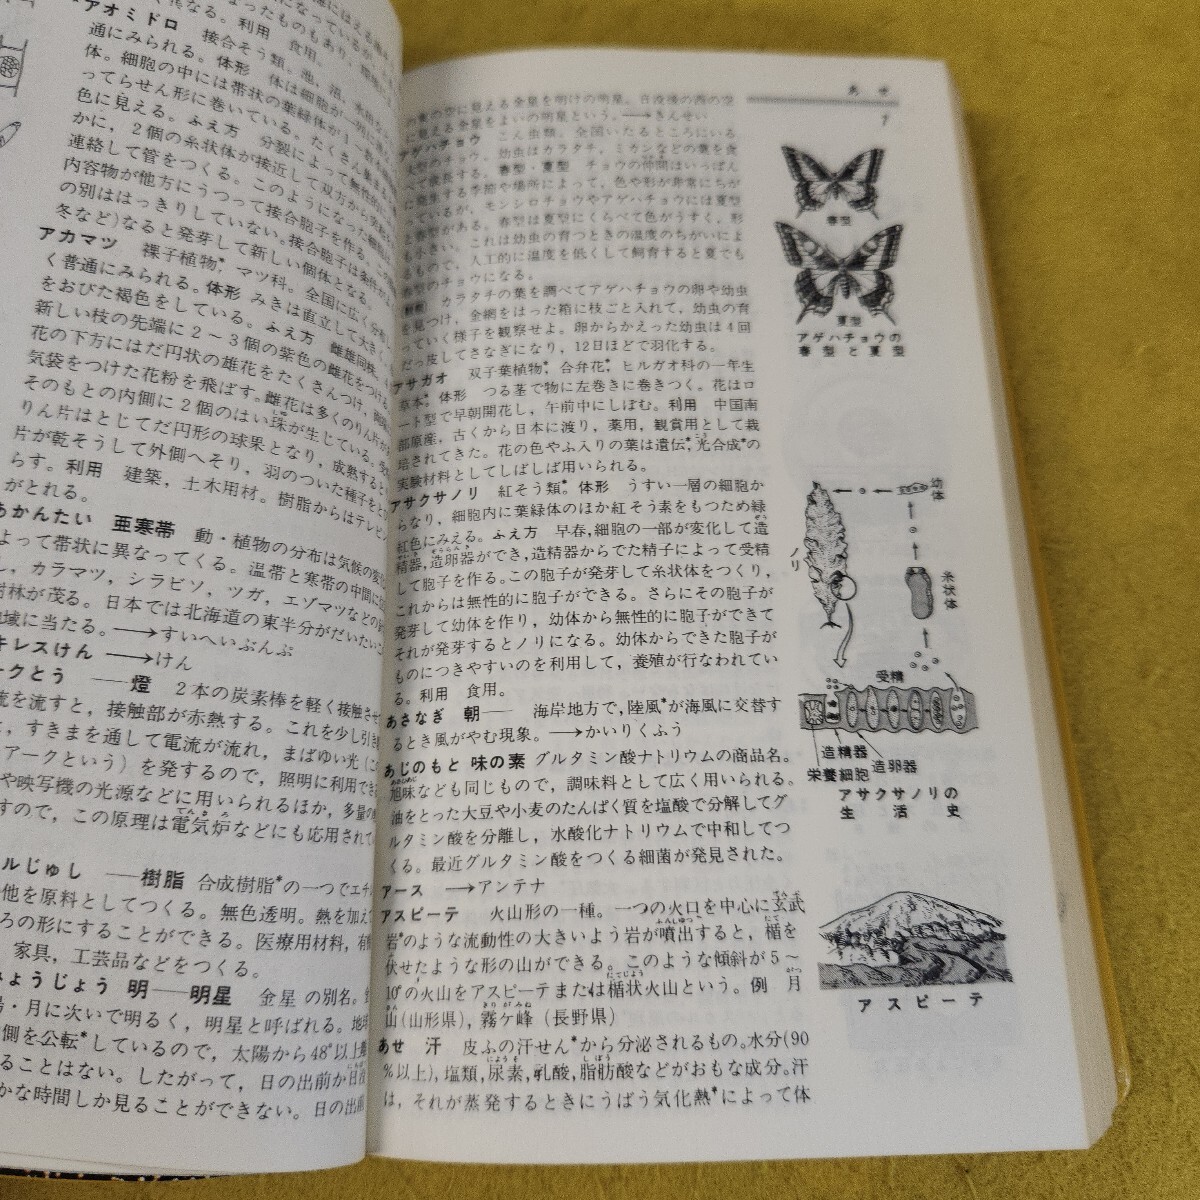 アオミドロ　接合そう類。池，沼，
通にみられる。体形　体は細胞が一列に
体。細胞の中には帯状の葉緑体が1～数
ってらせん形に巻いている。たくさん集まる
色に見える。ふえ方　分裂によって無性的に
かに，2個の糸状体が接近して双方から突起
連絡して管をつくる。このようになった細胞
内容物が他方にうつって接合胞子を作る。この
の別ははっきりしていない。接合胞子は条件が
冬など)なると発芽して新しい個体となる。
アカマツ　裸子植物*，マツ科。全国に広く分布し
く普通にみられる。体形　みきは直立して大きく，
をおびた褐色をしている。ふえ方　雌雄同株。
新しい枝の先端に2～3個の紫色の雌花をつける。
花の下方にはだ円状の雄花をたくさんつけ，
気袋をつけた花粉を飛ばす。雌花は多くのりん片が
そのもとの内側に2個のはい珠が生じている。受
りん片はとじてだ円形の球果となり，成熟すると
片が乾そうして外側へそり，羽のついた種子をと
らす。利用　建築，土木用材。樹脂からはテレビン
がとれる。
あかんたい　亜寒帯　動・植物の分布は気候の変化
よって帯状に異なってくる。温帯と寒帯の中間に
，カラマツ，シラビソ，ツガ，エゾマツなどの
樹林が茂る。日本では北海道の東半分がだいたいこ
地域に当たる。→すいへいぶんぷ
キレスけん　→けん
ークとう　――燈　2本の炭素棒を軽く接触させ
流を流すと，接触部が赤熱する。これを少し引き
，すきまを通して電流が流れ，まばゆい光(こ
アークという)を発するので，照明に利用でき
や映写機の光源などに用いられるほか，多量の
すので，この原理は電気炉などにも応用されて
ルじゅし　――樹脂　合成樹脂*の一つでエチル
他を原料としてつくる。無色透明。熱を加えて
ろの形にすることができる。医療用材料，有
家具，工芸品などをつくる。
みょうじょう　明――明星　金星の別名。
陽・月に次いで明るく，明星と呼ばれる。地球
側を公転*しているので，太陽から48°以上離
ることはない。したがって，日の出前か日没
かな時間しか見ることができない。日の出前
あせ
7
の東の空に見える金星を明けの明星，日没後の西の空
に見える金星をよいの明星という。→きんせい
アゲハチョウ　こん虫類。全国いたるところにいる
大型のチョウ。幼虫はカラタチ，ミカンなどの葉を食
べて成長する。春型・夏型　チョウの仲間はいっぱん
に発生する季節や場所によって，色や形が非常にちが
っているが，モンシロチョウやアゲハチョウには夏型
と春型がある。春型は夏型にくらべて色がうすく，形
も小さい。これは幼虫の育つときの温度のちがいによ
るもので，人工的に温度を低くして飼育すると夏でも
春型のチョウになる。
観察　カラタチの葉を調べてアゲハチョウの卵や幼虫
を見つけ，金網をはった箱に枝ごと入れて，幼虫の育
っていく様子を観察せよ。卵からかえった幼虫は4回
だっ皮してさなぎになり，12日ほどで羽化する。
アサガオ　双子葉植物*，合弁花*，ヒルガオ科の一年生
草本*。体形　つる茎で物に左巻きに巻きつく。花はロ
ート型で早朝開花し，午前中にしぼむ。利用　中国南
部原産，古くから日本に渡り，薬用，観賞用として栽
培されてきた。花の色やふ入りの葉は遺伝*，光合成*の
実験材料としてしばしば用いられる。
アサクサノリ　紅そう類*。体形　うすい一層の細胞か
らなり，細胞内に葉緑体のほか紅そう素をもつため緑
紅色にみえる。ふえ方　早春，細胞の一部が変化して造
精器，造卵器ができ，造精器からでた精子によって受精
して胞子を作る。この胞子が発芽して糸状体をつくり，
これからは無性的に胞子ができる。さらにその胞子が
発芽して幼体を作り，幼体から無性的に胞子ができて
それが発芽するとノリになる。幼体からできた胞子が
ものにつきやすいのを利用して，養殖が行なわれてい
る。利用　食用。
あさなぎ　朝――　海岸地方で，陸風*が海風に交替す
るとき風がやむ現象。→かいりくふう
あじのもと　味の素　グルタミン酸ナトリウムの商品名。
旭味なども同じもので，調味料として広く用いられる。
油をとった大豆や小麦のたんぱく質を塩酸で分解してグ
ルタミン酸を分離し，水酸化ナトリウムで中和してつ
くる。最近グルタミン酸をつくる細菌が発見された。
アース　→アンテナ
アスピーテ　火山形の一種。一つの火口を中心に玄武
岩*のような流動性の大きいよう岩が噴出すると，楯を
伏せたような形の山ができる。このような傾斜が5～
10°の火山をアスピーテまたは楯状火山という。例　月
山(山形県)，霧ケ峰(長野県)
あせ　汗　皮ふの汗せん*から分泌されるもの。水分(90
%以上)，塩類，尿素，乳酸，脂肪酸などがおもな成分。汗
は，それが蒸発するときにうばう気化熱*によって体
春型
夏型
アゲハチョウの
春型と夏型
幼体
ノリ
糸状体
受精
造精器
造卵器
栄養細胞
アサクサノリの
生活史
アスピーテ